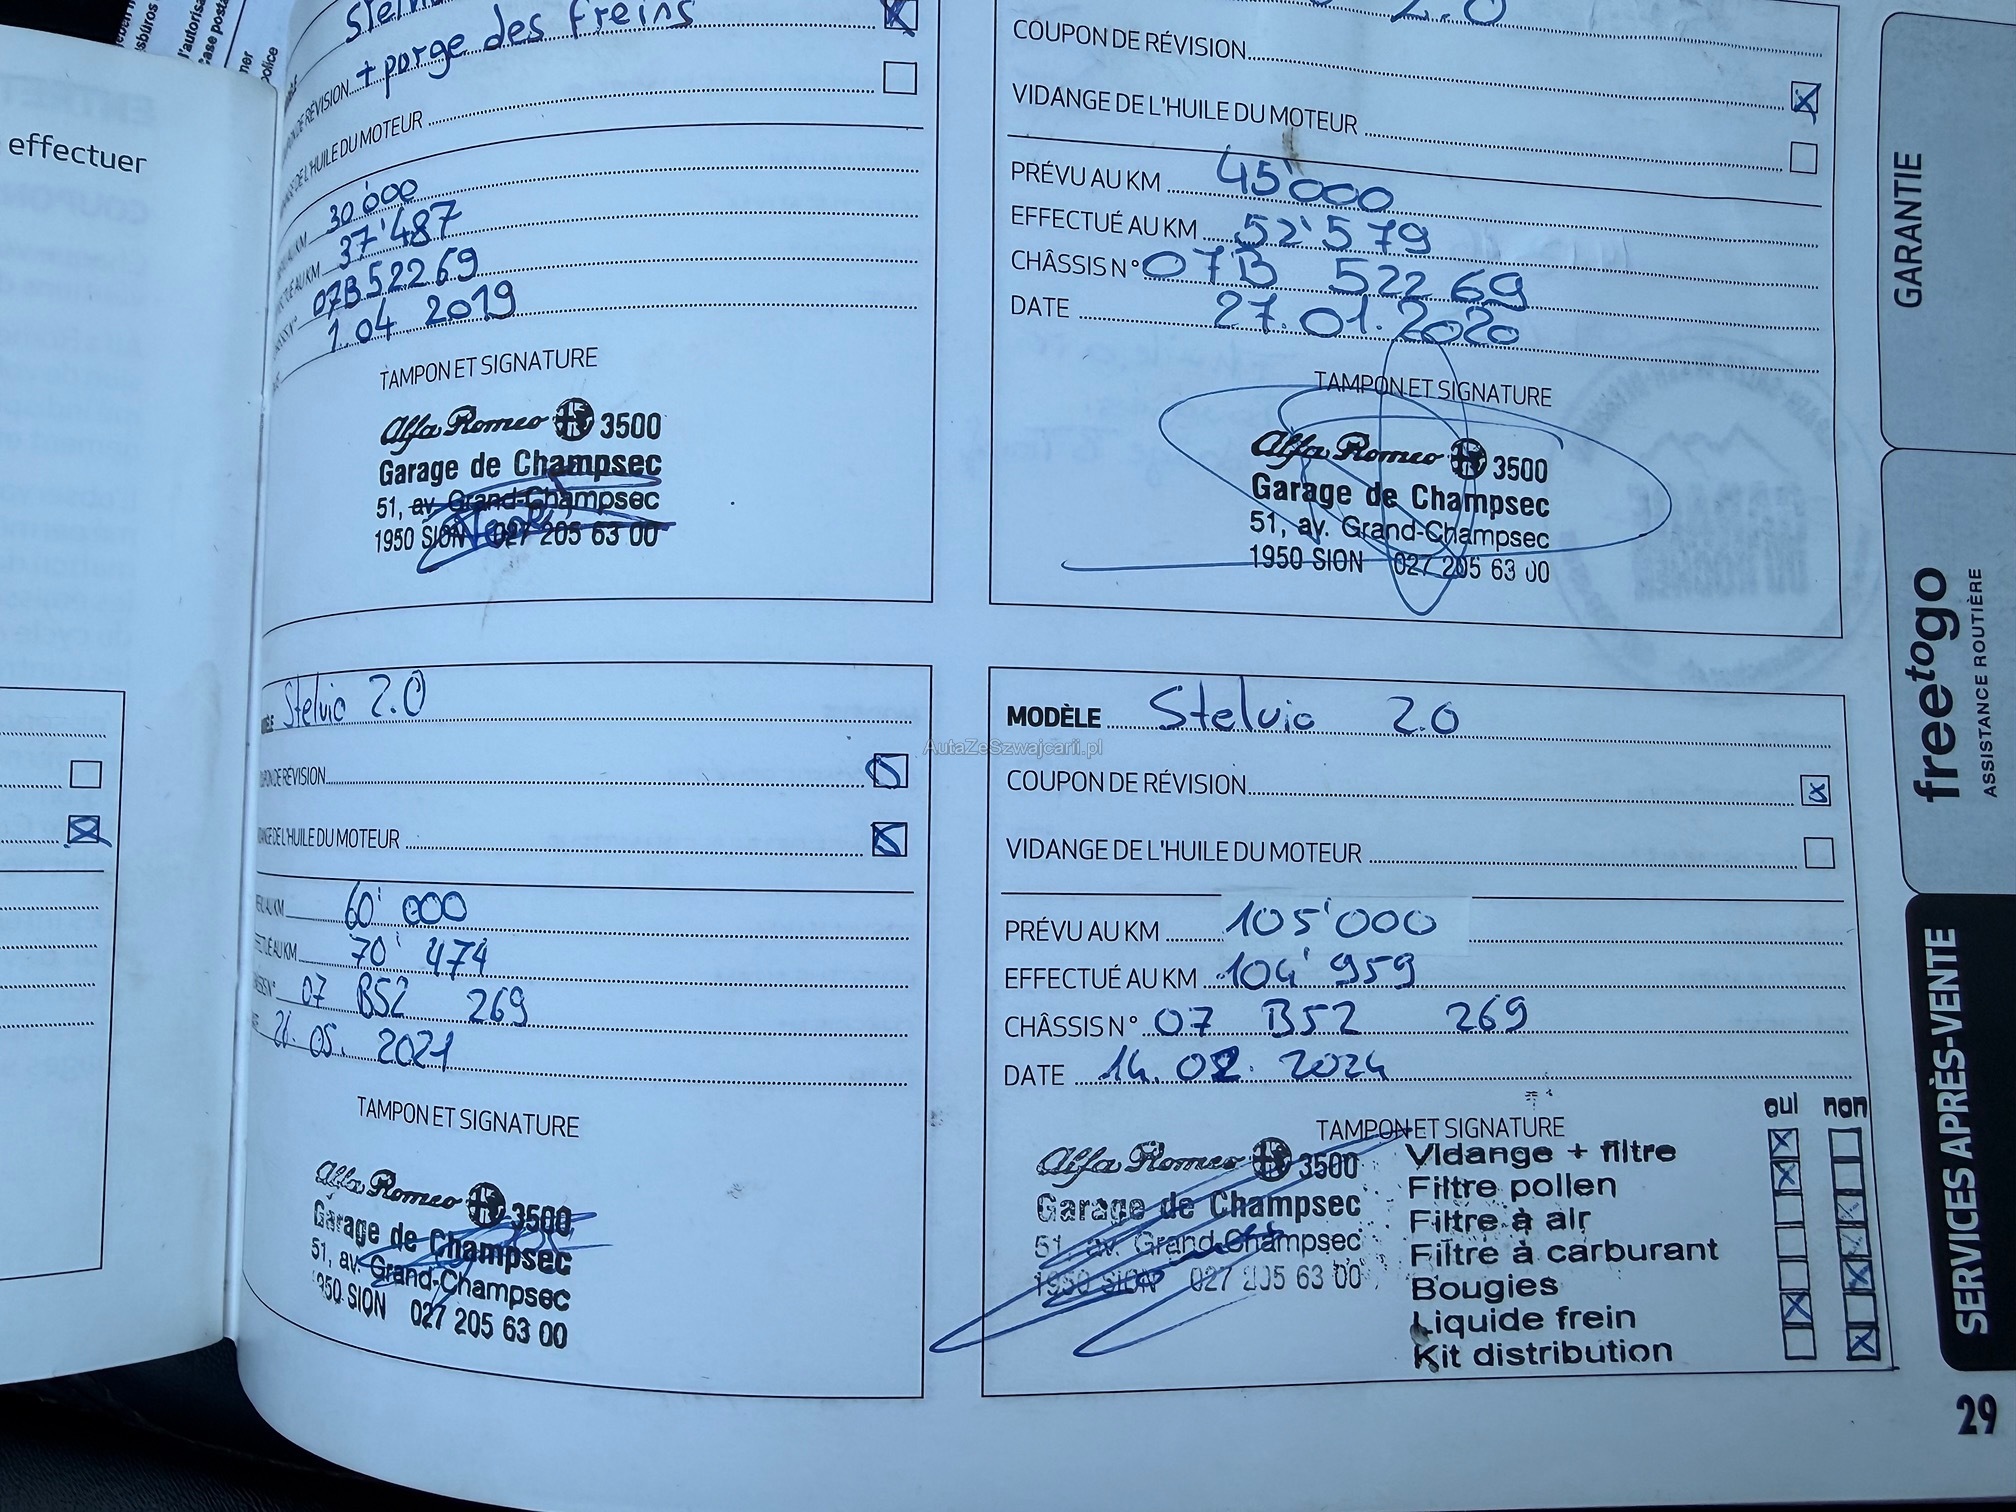 l'autorisa
police
effectuer
+ porge des freins
VIDANGE DE L'HUILE DU MOTEUR
30'000
37'487
07B52269
1.04 2019
TAMPON ET SIGNATURE
Alfa Romeo 3500
Garage de Champsec
51, av. Grand-Champsec
1950 SION 027 205 63 00
2.0
COUPON DE RÉVISION
VIDANGE DE L'HUILE DU MOTEUR
PRÉVU AU KM 45'000
EFFECTUÉ AU KM 52'579
CHÂSSIS N° 07B 52269
DATE 27.01.2020
TAMPON ET SIGNATURE
Alfa Romeo 3500
Garage de Champsec
51, av. Grand-Champsec
1950 SION 027 205 63 00
Stelvio 2.0
COUPON DE RÉVISION
VIDANGE DE L'HUILE DU MOTEUR
60'000
70'474
07 B52 269
26.05.2021
TAMPON ET SIGNATURE
Alfa Romeo 3500
Garage de Champsec
51, av. Grand-Champsec
1950 SION 027 205 63 00
AutaZeSzwajcarii.pl
MODÈLE Stelvio 2.0
COUPON DE RÉVISION
VIDANGE DE L'HUILE DU MOTEUR
PRÉVU AU KM 105'000
EFFECTUÉ AU KM 104'959
CHÂSSIS N° 07 B52 269
DATE 14.02.2024
TAMPON ET SIGNATURE
Alfa Romeo 3500
Garage de Champsec
51, av. Grand-Champsec
1950 SION 027 205 63 00
oui non
Vidange + filtre
Filtre pollen
Filtre à air
Filtre à carburant
Bougies
Liquide frein
Kit distribution
GARANTIE
freetogo
ASSISTANCE ROUTIÈRE
SERVICES APRÈS-VENTE
29